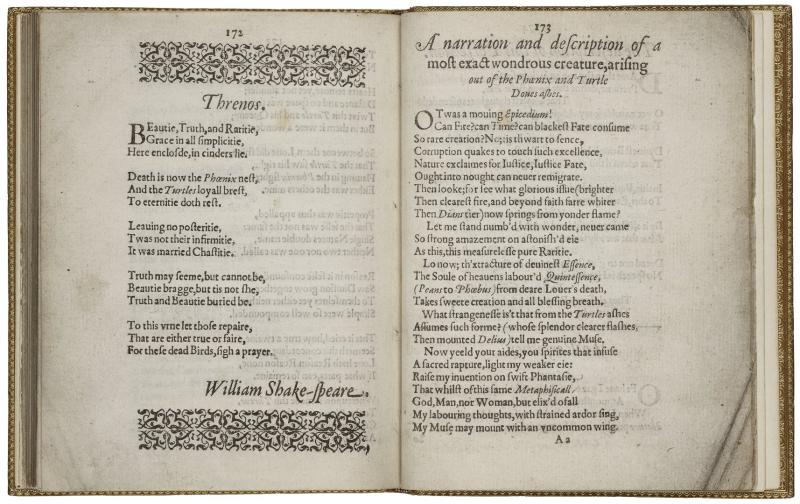 172
Threnos.
BEautie, Truth, and Raritie,
Grace in all simplicitie,
Here enclosde, in cinders lie.
Death is now the Phœnix nest,
And the Turtles loyall brest,
To eternitie doth rest.
Leauing no posteritie,
Twas not their infirmitie,
It was married Chastitie.
Truth may seeme, but cannot be,
Beautie bragge, but tis not she,
Truth and Beautie buried be.
To this vrne let those repaire,
That are either true or faire,
For these dead Birds, sigh a prayer.
William Shake-speare.
173
A narration and description of a
most exact wondrous creature, arising
out of the Phœnix and Turtle
Doues ashes.
O Twas a mouing Epicedium!
Can Fire? can Time? can blackest Fate consume
So rare creation? No; tis thwart to sence,
Corruption quakes to touch such excellence,
Nature exclaimes for Iustice, Iustice Fate,
Ought into nought can neuer remigrate.
Then looke; for see what glorious issue (brighter
Then clearest fire, and beyond faith farre whiter
Then Dians tier) now springs from yonder flame?
Let me stand numb'd with wonder, neuer came
So strong amazement on astonish'd eie
As this, this measurelesse pure Raritie.
Lo now; th'xtracture of deuinest Essence,
The Soule of heauens labour'd Quintessence,
(Peans to Phœbus) from deare Louer's death,
Takes sweete creation and all blessing breath.
What strangenesse is't that from the Turtles ashes
Assumes such forme? (whose splendor clearer flashes,
Then mounted Delius) tell me genuine Muse.
Now yeeld your aides, you spirites that infuse
A sacred rapture, light my weaker eie:
Raise my inuention on swift Phantasie,
That whilst of this same Metaphisicall
God, Man, nor Woman, but elix'd of all
My labouring thoughts, with strained ardor sing,
My Muse may mount with an vncommon wing.
Aa